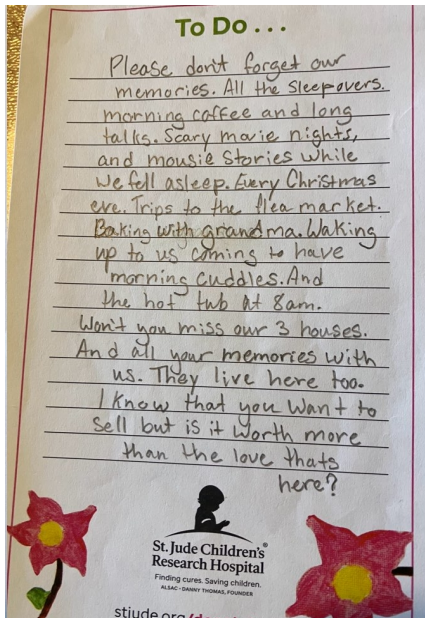 To Do...
Please don't forget our
memories. All the sleepovers.
morning coffee and long
talks. Scary movie nights,
and mousie stories while
we fell asleep. Every Christmas
eve. Trips to the flea market.
Baking with grandma. Waking
up to us coming to have
morning cuddles. And
the hot tub at 8am.
Won't you miss our 3 houses.
And all your memories with
us. They live here too.
I know that you want to
sell but is it worth more
than the love thats
here?
St. Jude Children's
Research Hospital
Finding cures. Saving children.
ALSAC • DANNY THOMAS, FOUNDER
stjude.org/